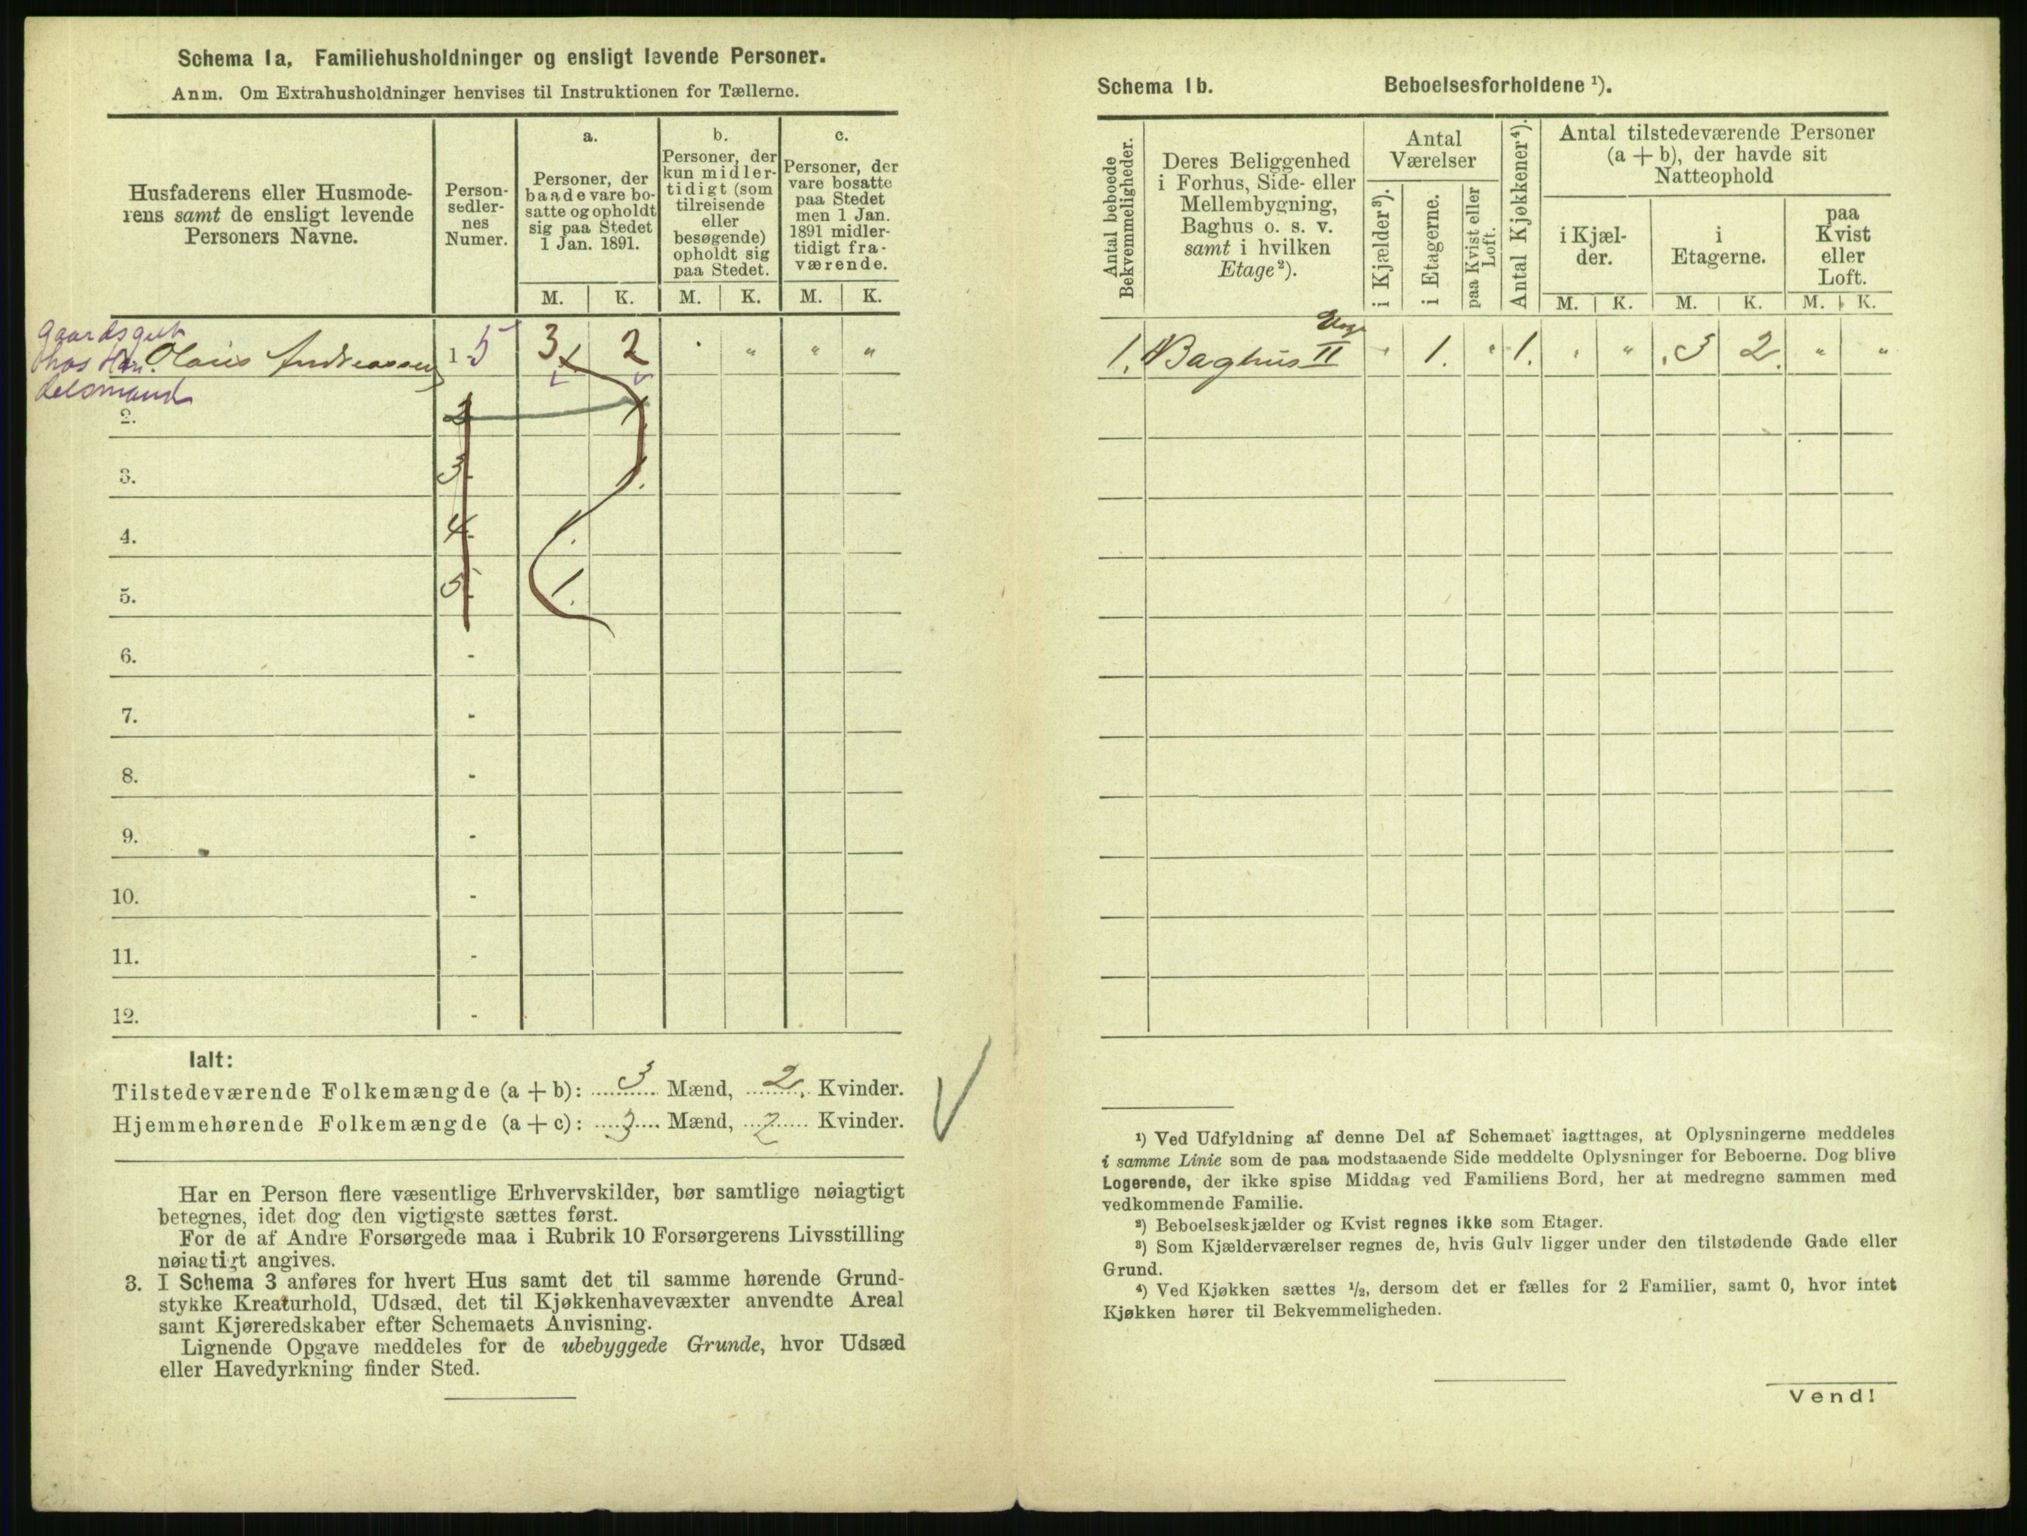 Schema 1a, Familiehusholdninger og ensligt levende Personer.
Anm. Om Extrahusholdninger henvises til Instruktionen for Tællerne.
Husfaderens eller Husmode-
rens samt de ensligt levende
Personers Navne.
Person-
sedler-
nes
Numer.
a.
Personer, der
baade vare bo-
satte og opholdt
sig paa Stedet
1 Jan. 1891.
b.
Personer, der
kun midler-
tidigt (som
tilreisende
eller
besøgende)
opholdt sig
paa Stedet.
c.
Personer, der
vare bosatte
paa Stedet
men 1 Jan.
1891 midler-
tidigt fra-
værende.
M. K. M. K. M. K.
Gaardsgut
hos Han
delsmand
Olaus Andreassen 1. 5 3 2 " " " "
2. 2 1
3. 3. 1.
4. 4. 1.
5. 5. 1.
6. -
7. -
8. -
9. -
10. -
11. -
12. -
Ialt:
Tilstedeværende Folkemængde (a + b): 3 Mænd, 2. Kvinder.
Hjemmehørende Folkemængde (a + c): 3 Mænd, 2 Kvinder.
Har en Person flere væsentlige Erhvervskilder, bør samtlige nøiagtigt
betegnes, idet dog den vigtigste sættes først.
For de af Andre Forsørgede maa i Rubrik 10 Forsørgerens Livsstilling
nøiagtigt angives.
3. I Schema 3 anføres for hvert Hus samt det til samme hørende Grund-
stykke Kreaturhold, Udsæd, det til Kjøkkenhavevæxter anvendte Areal
samt Kjøreredskaber efter Schemaets Anvisning.
Lignende Opgave meddeles for de ubebyggede Grunde, hvor Udsæd
eller Havedyrkning finder Sted.
Schema 1b. Beboelsesforholdene ¹).
Antal beboede
Bekvemmeligheder.
Deres Beliggenhed
i Forhus, Side- eller
Mellembygning,
Baghus o. s. v.
samt i hvilken
Etage ²).
Antal
Værelser
i Kjælder ³).
i Etagerne.
paa Kvist eller
Loft.
Antal Kjøkkener ⁴).
Antal tilstedeværende Personer
(a + b), der havde sit
Natteophold
i Kjæl-
der.
i
Etagerne.
paa
Kvist
eller
Loft.
M. K. M. K. M. K.
1. Baghus II " 1. " 1. " " 3 2. " "
¹) Ved Udfyldning af denne Del af Schemaet iagttages, at Oplysningerne meddeles
i samme Linie som de paa modstaaende Side meddelte Oplysninger for Beboerne. Dog blive
Logerende, der ikke spise Middag ved Familiens Bord, her at medregne sammen med
vedkommende Familie.
²) Beboelseskjælder og Kvist regnes ikke som Etager.
³) Som Kjælderværelser regnes de, hvis Gulv ligger under den tilstødende Gade eller
Grund.
⁴) Ved Kjøkken sættes ½, dersom det er fælles for 2 Familier, samt 0, hvor intet
Kjøkken hører til Bekvemmeligheden.
Vend!